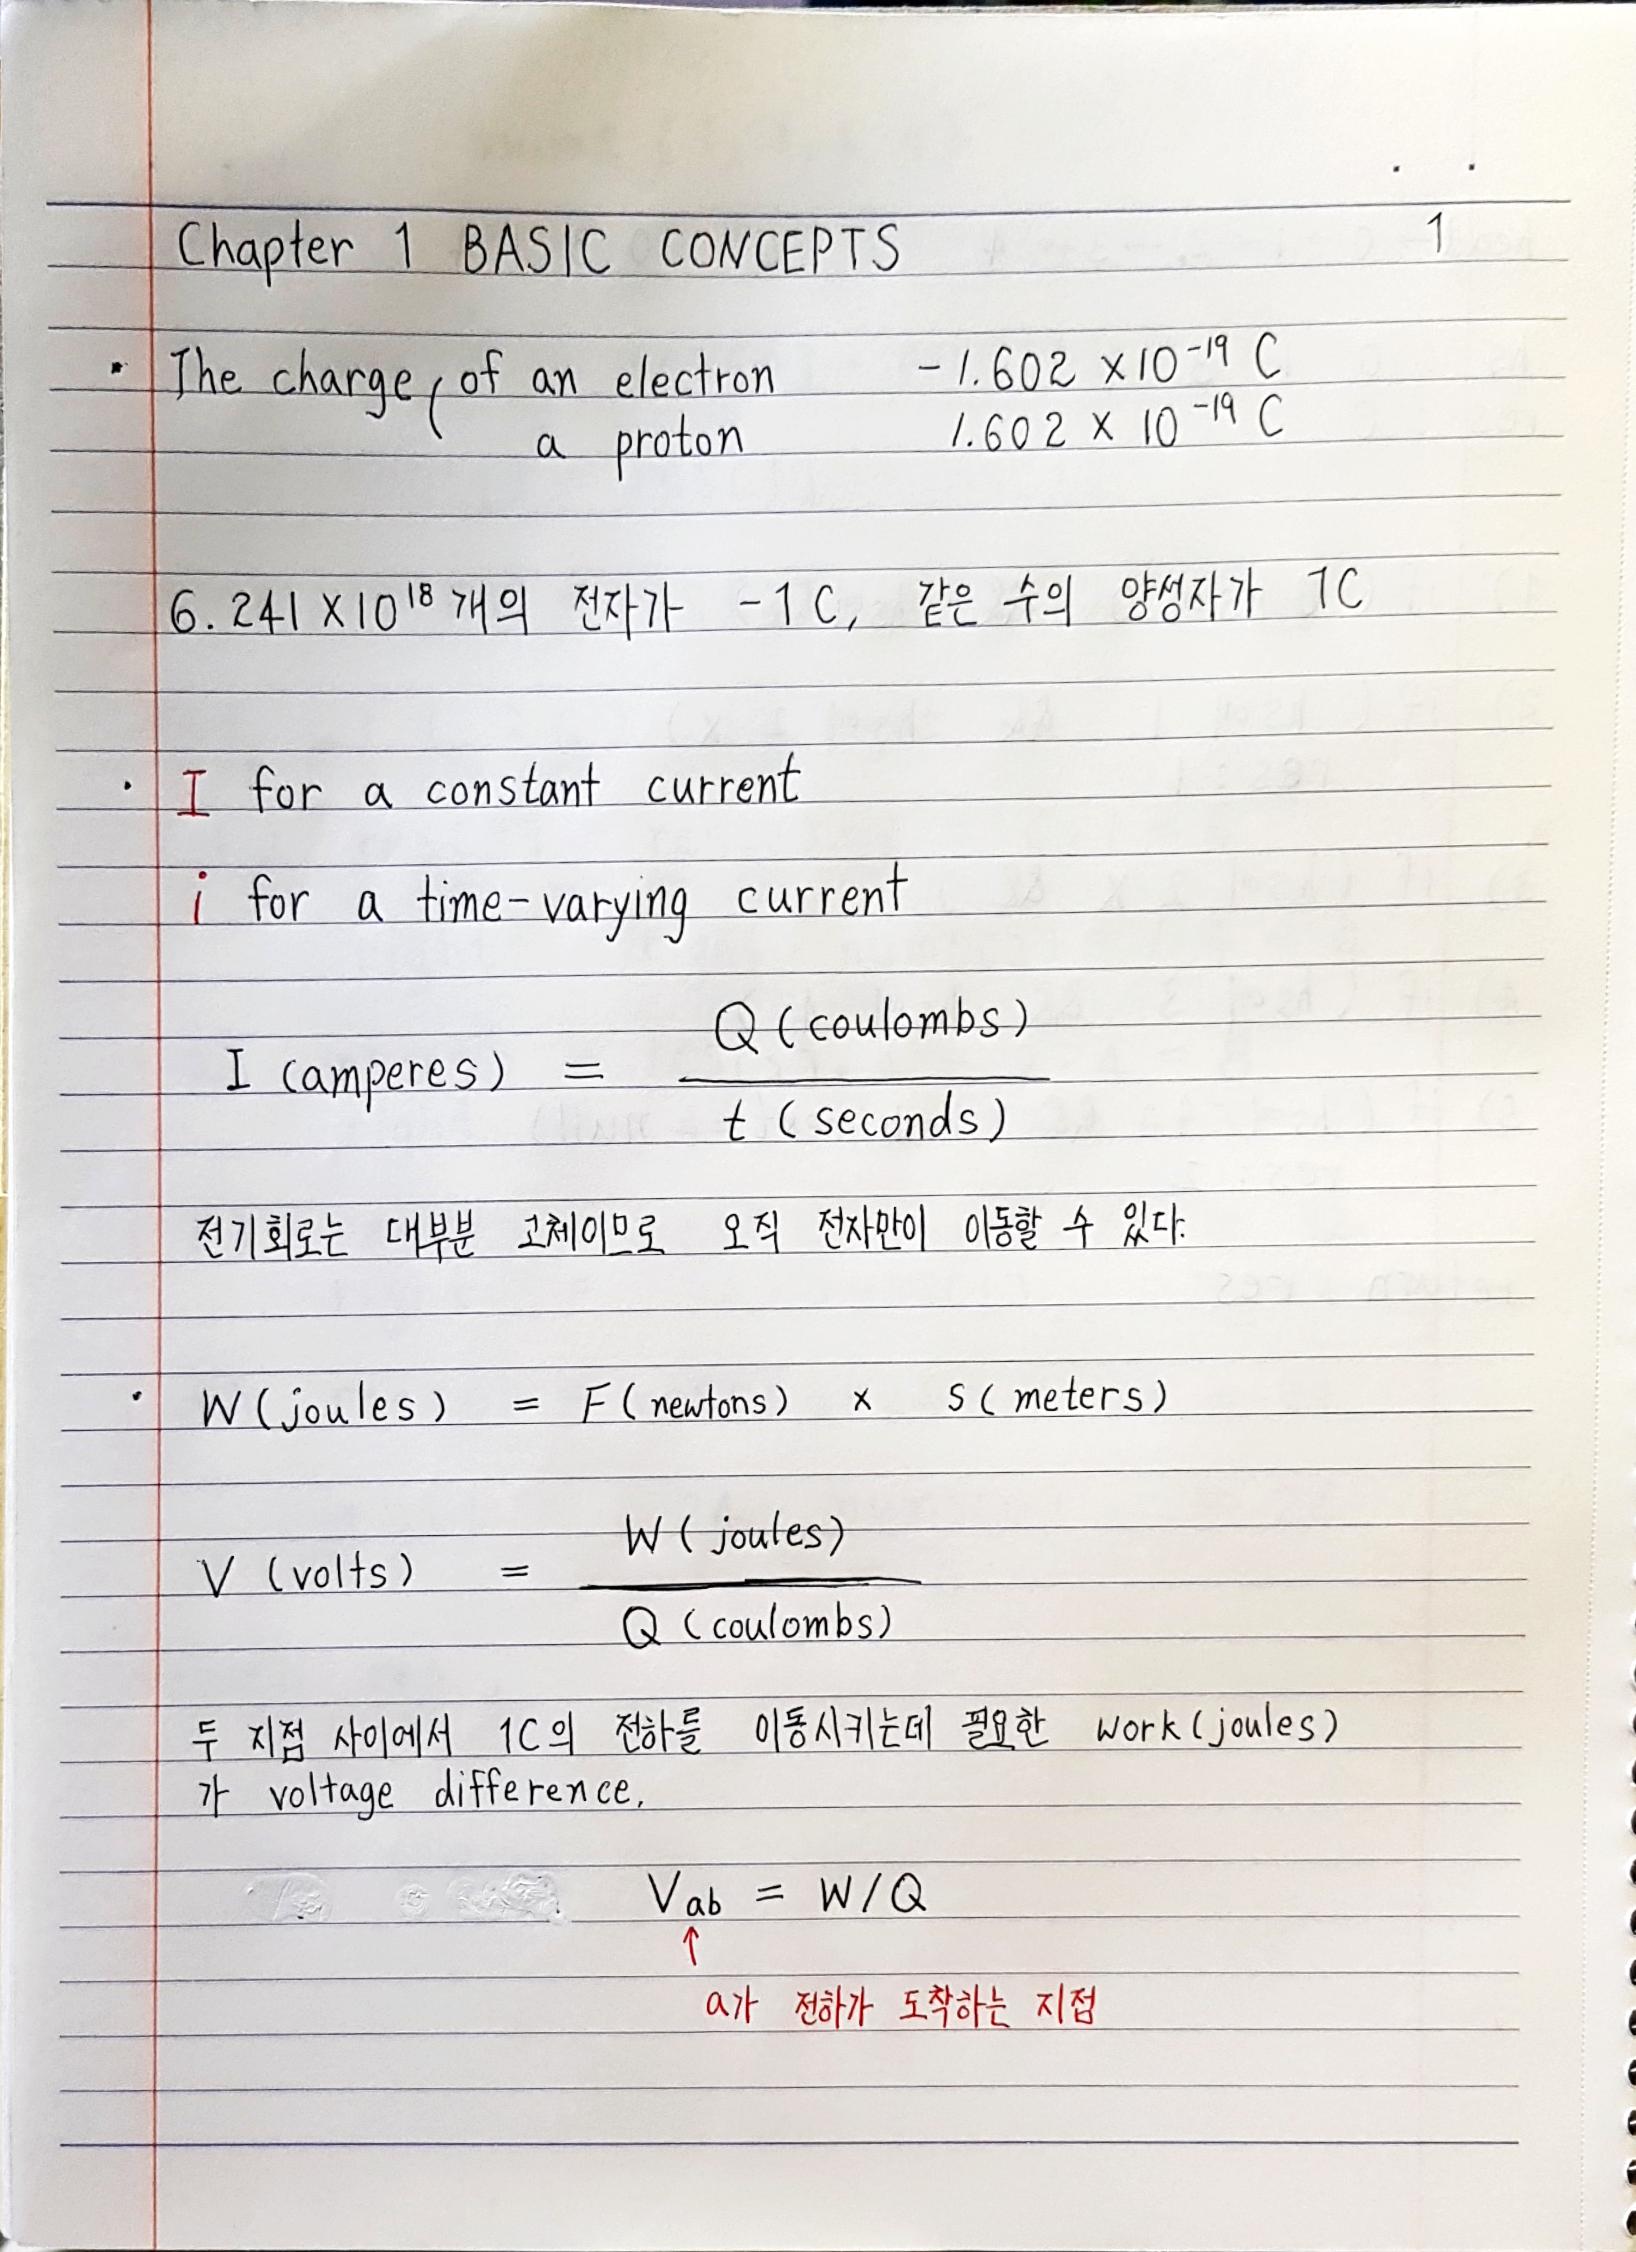 Chapter 1 BASIC CONCEPTS 1
• The charge of an electron -1.602 × 10⁻¹⁹ C
a proton 1.602 × 10⁻¹⁹ C
6.241 × 10¹⁸ 개의 전자가 -1C, 같은 수의 양성자가 1C
• I for a constant current
i for a time-varying current
Q (coulombs)
I (amperes) =
t (seconds)
전기회로는 대부분 고체이므로 오직 전자만이 이동할 수 있다.
• W (joules) = F (newtons) × S (meters)
W (joules)
V (volts) =
Q (coulombs)
두 지점 사이에서 1C의 전하를 이동시키는데 필요한 work (joules)
가 voltage difference.
Vab = W/Q
↑
a가 전하가 도착하는 지점